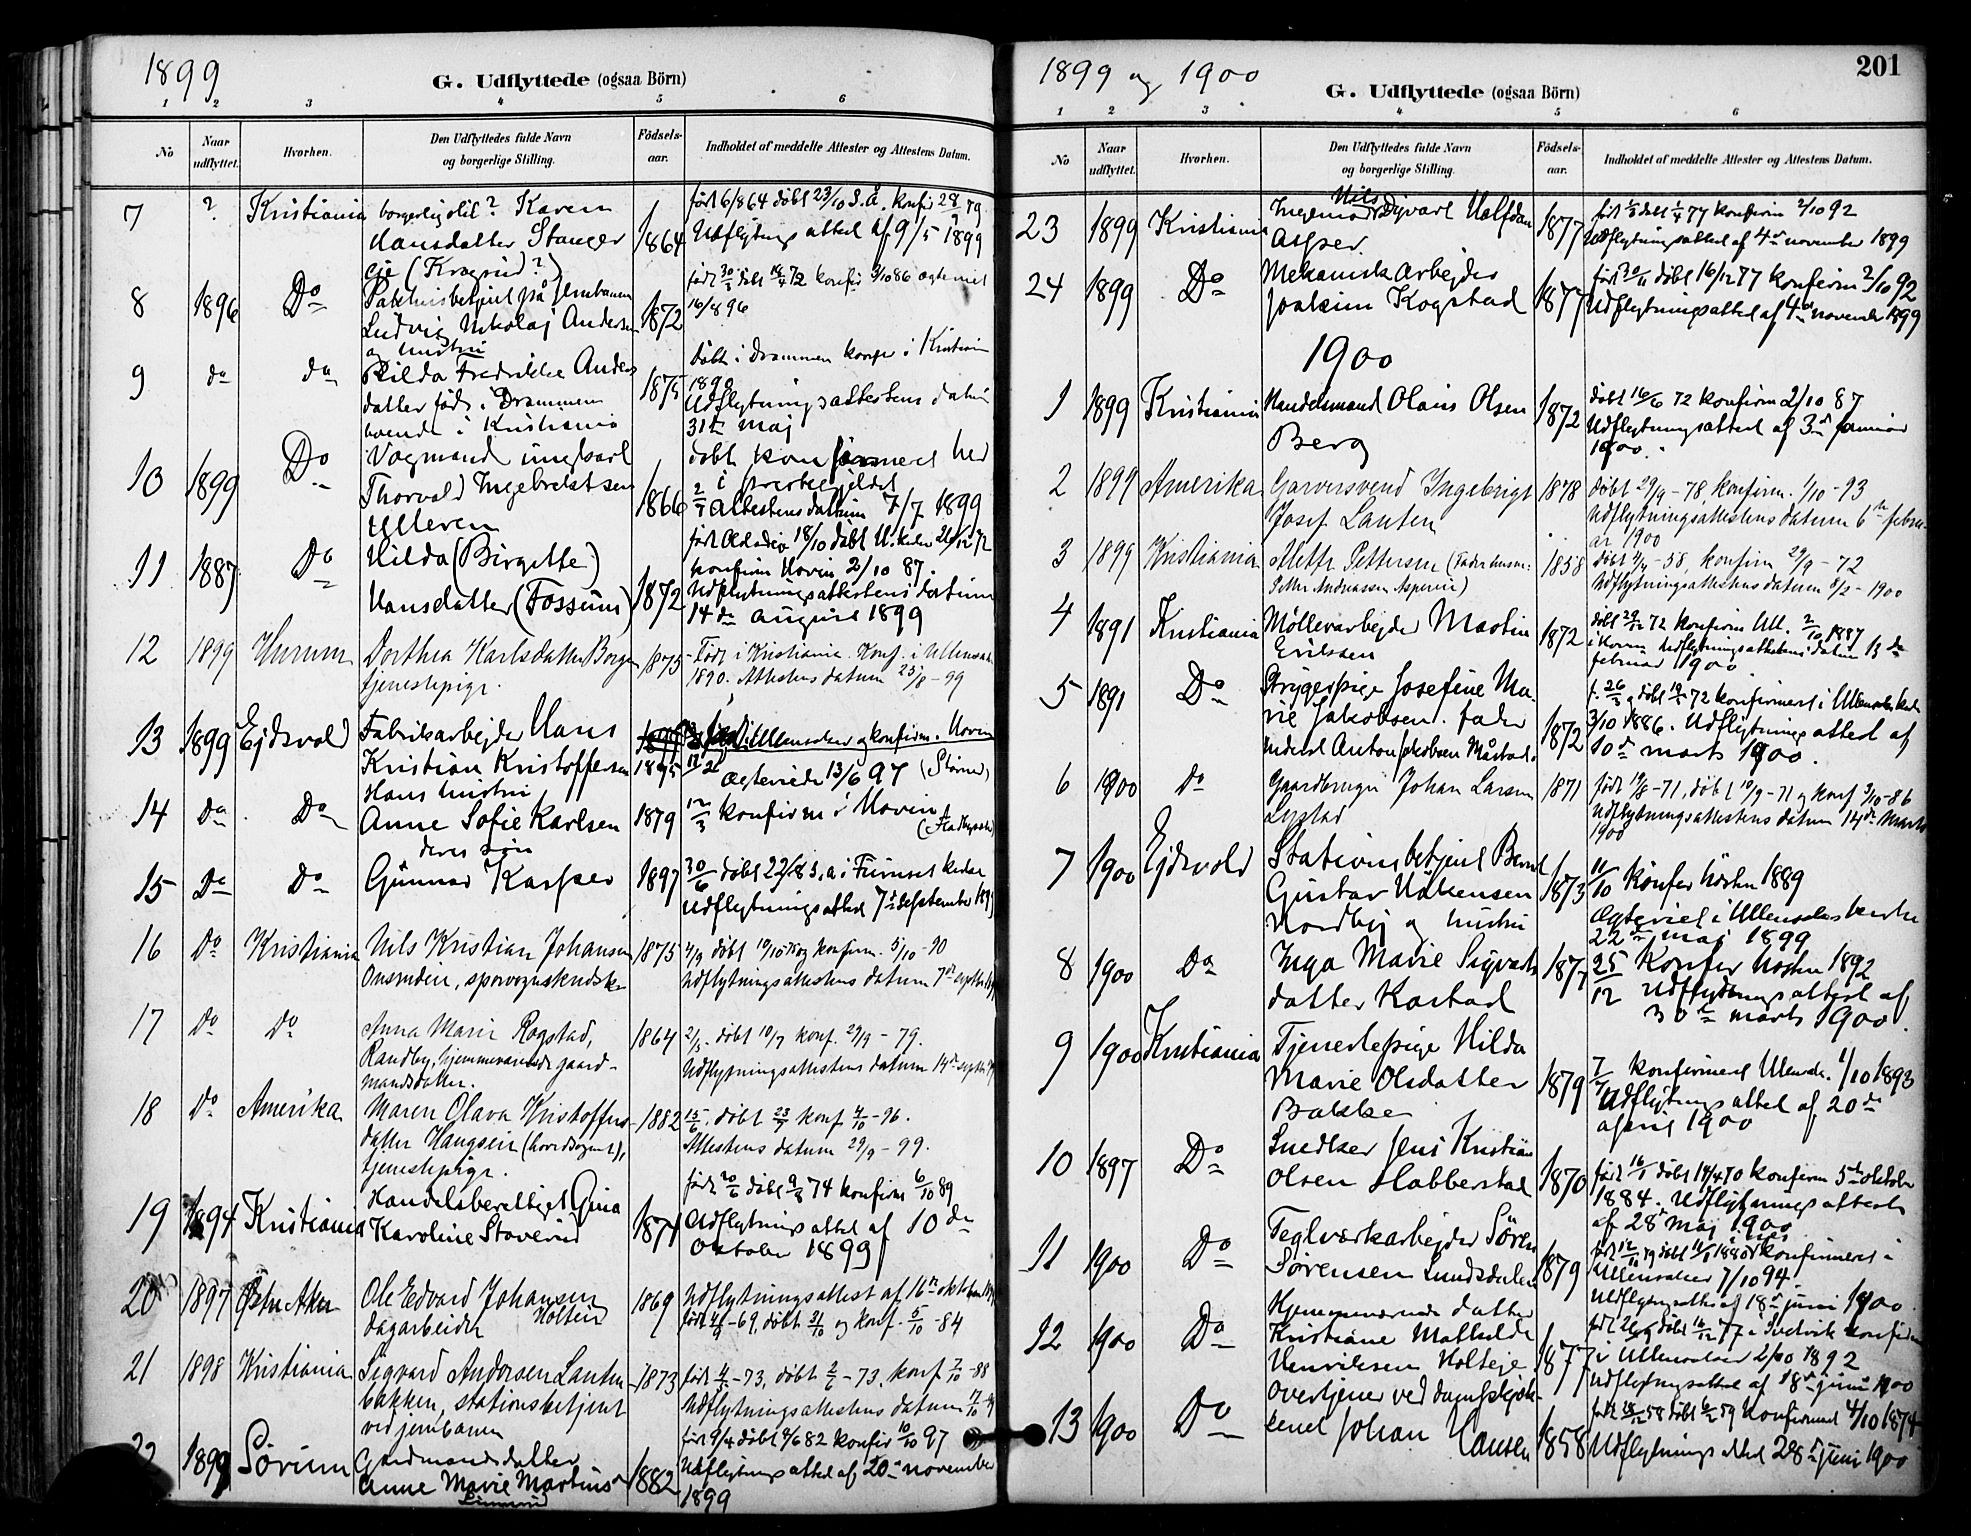 1899
G. Udflyttede (ogsaa Börn)
1 2 3 4 5 6
No
Naar udflyttet.
Hvorhen.
Den Udflyttedes fulde Navn
og borgerlige Stilling.
Födsels-aar.
Indholdet af meddelte Attester og Attestens Datum.
7 ? Kristiania borgerlig stil? Karen
Hansdatter Stanger
eje (Kragrud?)
1864
født 6/8 64 døbt 23/10 s.å. konfir 28/9 79
Udflytnings attest af 9/5 1899
8 1896 Do
Ludvig Nikolaj Andersen
og hustru
1872
16/8 96
9 do do
Hilda Fredrikke Anders
datter føds i Drammen
boende i Kristiania
1875
døbt i Drammen konfir i Kristiania
1890
Udflytningsattestens datum
31te maj
10 1899 Do
Vognmand ungkarl
Thorvald Ingebretsen
Ulleren
1866
døbt konfirmeret her
i præstegjeldet
Attestens datum 7/7 1899
11 1887 Do
Hilda (Birgitte)
Hansdatter (Fossum)
1872
konfirm Hovin 2/10 87.
Udflytningsattestens datum
14de august 1899
12 1899 Hurum Dorthea Karlsdatter Borgen
tjenestepige.
1875
Født i Kristiania. Konf. i Ullensak.
1890. Attestens datum 25/8 - 99
13 1899 Ejdsvold Fabrikarbejder Hans
Kristian Kristoffersen
Hans hustru
1875
ægteviede 13/6 97
14 do Do
Anne Sofie Karlsen
deres søn
1879
12/3 konfirm i Hovin
15 Do Do
Gunnar Kasper
1897
30/6 døbt 22/8 s.a i Furuset kirke
Udflytningsattest 7de September 1899
16 Do Kristiania Nils Kristian Johansen
Onsrudeie, sporvognskudsk
1875
4/9 døbt 10/10 75 og konfirm. 5/10 - 90
Udflytningsattestens datum 7de septbr
17 Do Do
Anna Marie Rogstad,
Randby, hjemmeværende gaard-
mandsdatter.
1864
2/5. døbt 10/7 konf. 29/9 - 79.
Udflytningsattestens datum 14de septbr
18 Do Amerika
Maren Olava Kristoffers
datter Haugseie (hovedsognet),
tjenestepige.
1882
15/6. døbt 23/7 konf 4/10 - 96.
Attestens datum 29/9 - 99.
19 1894 Kristiania
Handelsberettiget Gina
Karoline Stoverud
1874
født 20/6 døbt 9/8 74 konfirm 6/10 89
Udflytnings attest af 10de
Oktober 1899
20 1897 Østre Aker
Ole Edvard Johansen
dagarbeider Holteie
1869
Udflytningsattest af 16de oktober
født 4/9 - 69, døbt 31/10 og konf. 5/10 - 84
21 1898 Kristiania
Sigvard Andersen Lauten
bakken, stationsbetjent
ved jernbanen
1873
født 4/5 - 73, døbt 2/6 - 73. konf 7/10 - 88
Udflytningsattestens datum 17/10
22 1899 Sørum
Gardmandsdatter
Anne Marie Martins
1882
født 9/4 døbt 4/6 82 konfir 10/10 97
Udflytnings attest af 20de november
1899
1899 og 1900
G. Udflyttede (ogsaa Börn)
201
1 2 3 4 5 6
No
Naar udflyttet.
Hvorhen.
Den Udflyttedes fulde Navn
og borgerlige Stilling.
Födsels-aar.
Indholdet af meddelte Attester og Attestens Datum.
23 1899 Kristiania
Nils
Sigvart Halfdan
Asper
1877
konfirm 2/10 92
Udflytningsattest af 4de november 1899
24 1899 Do
Mekanisk Arbejder
Joakim Kogstad
1877
født 30/11 døbt 16/12 77 konfirm 2/10 92
Udflytningsattest af 4de november 1899
1900
1 1899 Kristiania Handelsmand Olaus Olsen
Berg
1872
døbt 16/6 72 konfirm 2/10 87
Udflytningsattest af 3de januar
1900.
2 1899 Amerika Garversvend Ingebrigt
Josef Lauten
1878
døbt 29/9 - 78, konfirm. 1/10 - 93
Udflytningsattestens datum 6te febru-
ar 1900
3 1899 Kristiania Mette Pettersen (Fader husm:
Petter Andreassen Asperin)
1858
konfirm 29/9 - 72
Udflytningsattestens datum 8/2 - 1900
4 1891 Kristiania Møllerarbejder Martin
Eriksen
1872
døbt 29/12 72 konfirm Ull. 2/10 1887
Udflytningsattestens datum 13de
februar 1900
5 1891 Do
Strygerpige Josefine Ma-
rie Jakobsen. fader
Inderst Anton Jakobsen Måstad.
1872
f. 26/3 døbt 19/5 72 konfirmeret i Ullensaker kirke
3/10 1886. Udflytnings attest af
10de marts 1900.
6 1900 do
Gaardbruger Johan Larsen
Lystad
1871
født 19/8 - 71, døbt 10/9 - 71 og konf 3/10 - 86
Udflytningsattestens datum 14de Marts
1900
7 1900 Ejdsvold
Stationsbetjent Bernt
Gustav Håkensen
Nordby og hustru
1873
11/10 konfir høsten 1889
Ægteviet i Ullensakers kirke
22de maj 1899
8 1900 Do
Inga Marie Sigvarts
datter Karstad
1877
25/12 Konfir høsten 1892
Udflytnings attest af
30te marts 1900.
9 1900 Kristiania
Tjenestepige Hilda
Marie Olsdatter
Bakke
1879
konfirmeret Ullensak. 1/10 1893
Udflytnings attest af 20de
april 1900
10 1897 Do
Snedker Jens Kristian
Olsen Habberstad
1870
født 16/1 døbt 18/4 70 konfirm 5te oktober
1884. Udflytnings attest
af 28de maj 1900
11 1900 Do
Teglværkarbejder Søren
Sørensen Lundsdalen
1879
konfirmeret i
Ullensaker 7/10 94.
Udflytningsattest af 18de juni 1900
12 1900 Do
Hjemmeværende datter
Kristiane Mathilde
Henriksen Holteje
1877
i Ullensaker 2/10 1892
Udflytningsattest af 18de juni 1900
13 1900 Do
Overtjener ved dampskjøk-
kenet Johan Hansen
1858
født 28/12 58 døbt 6/2 59 Konfirmeret 4/10 1874
Udflytnings attest 28de juni 1900